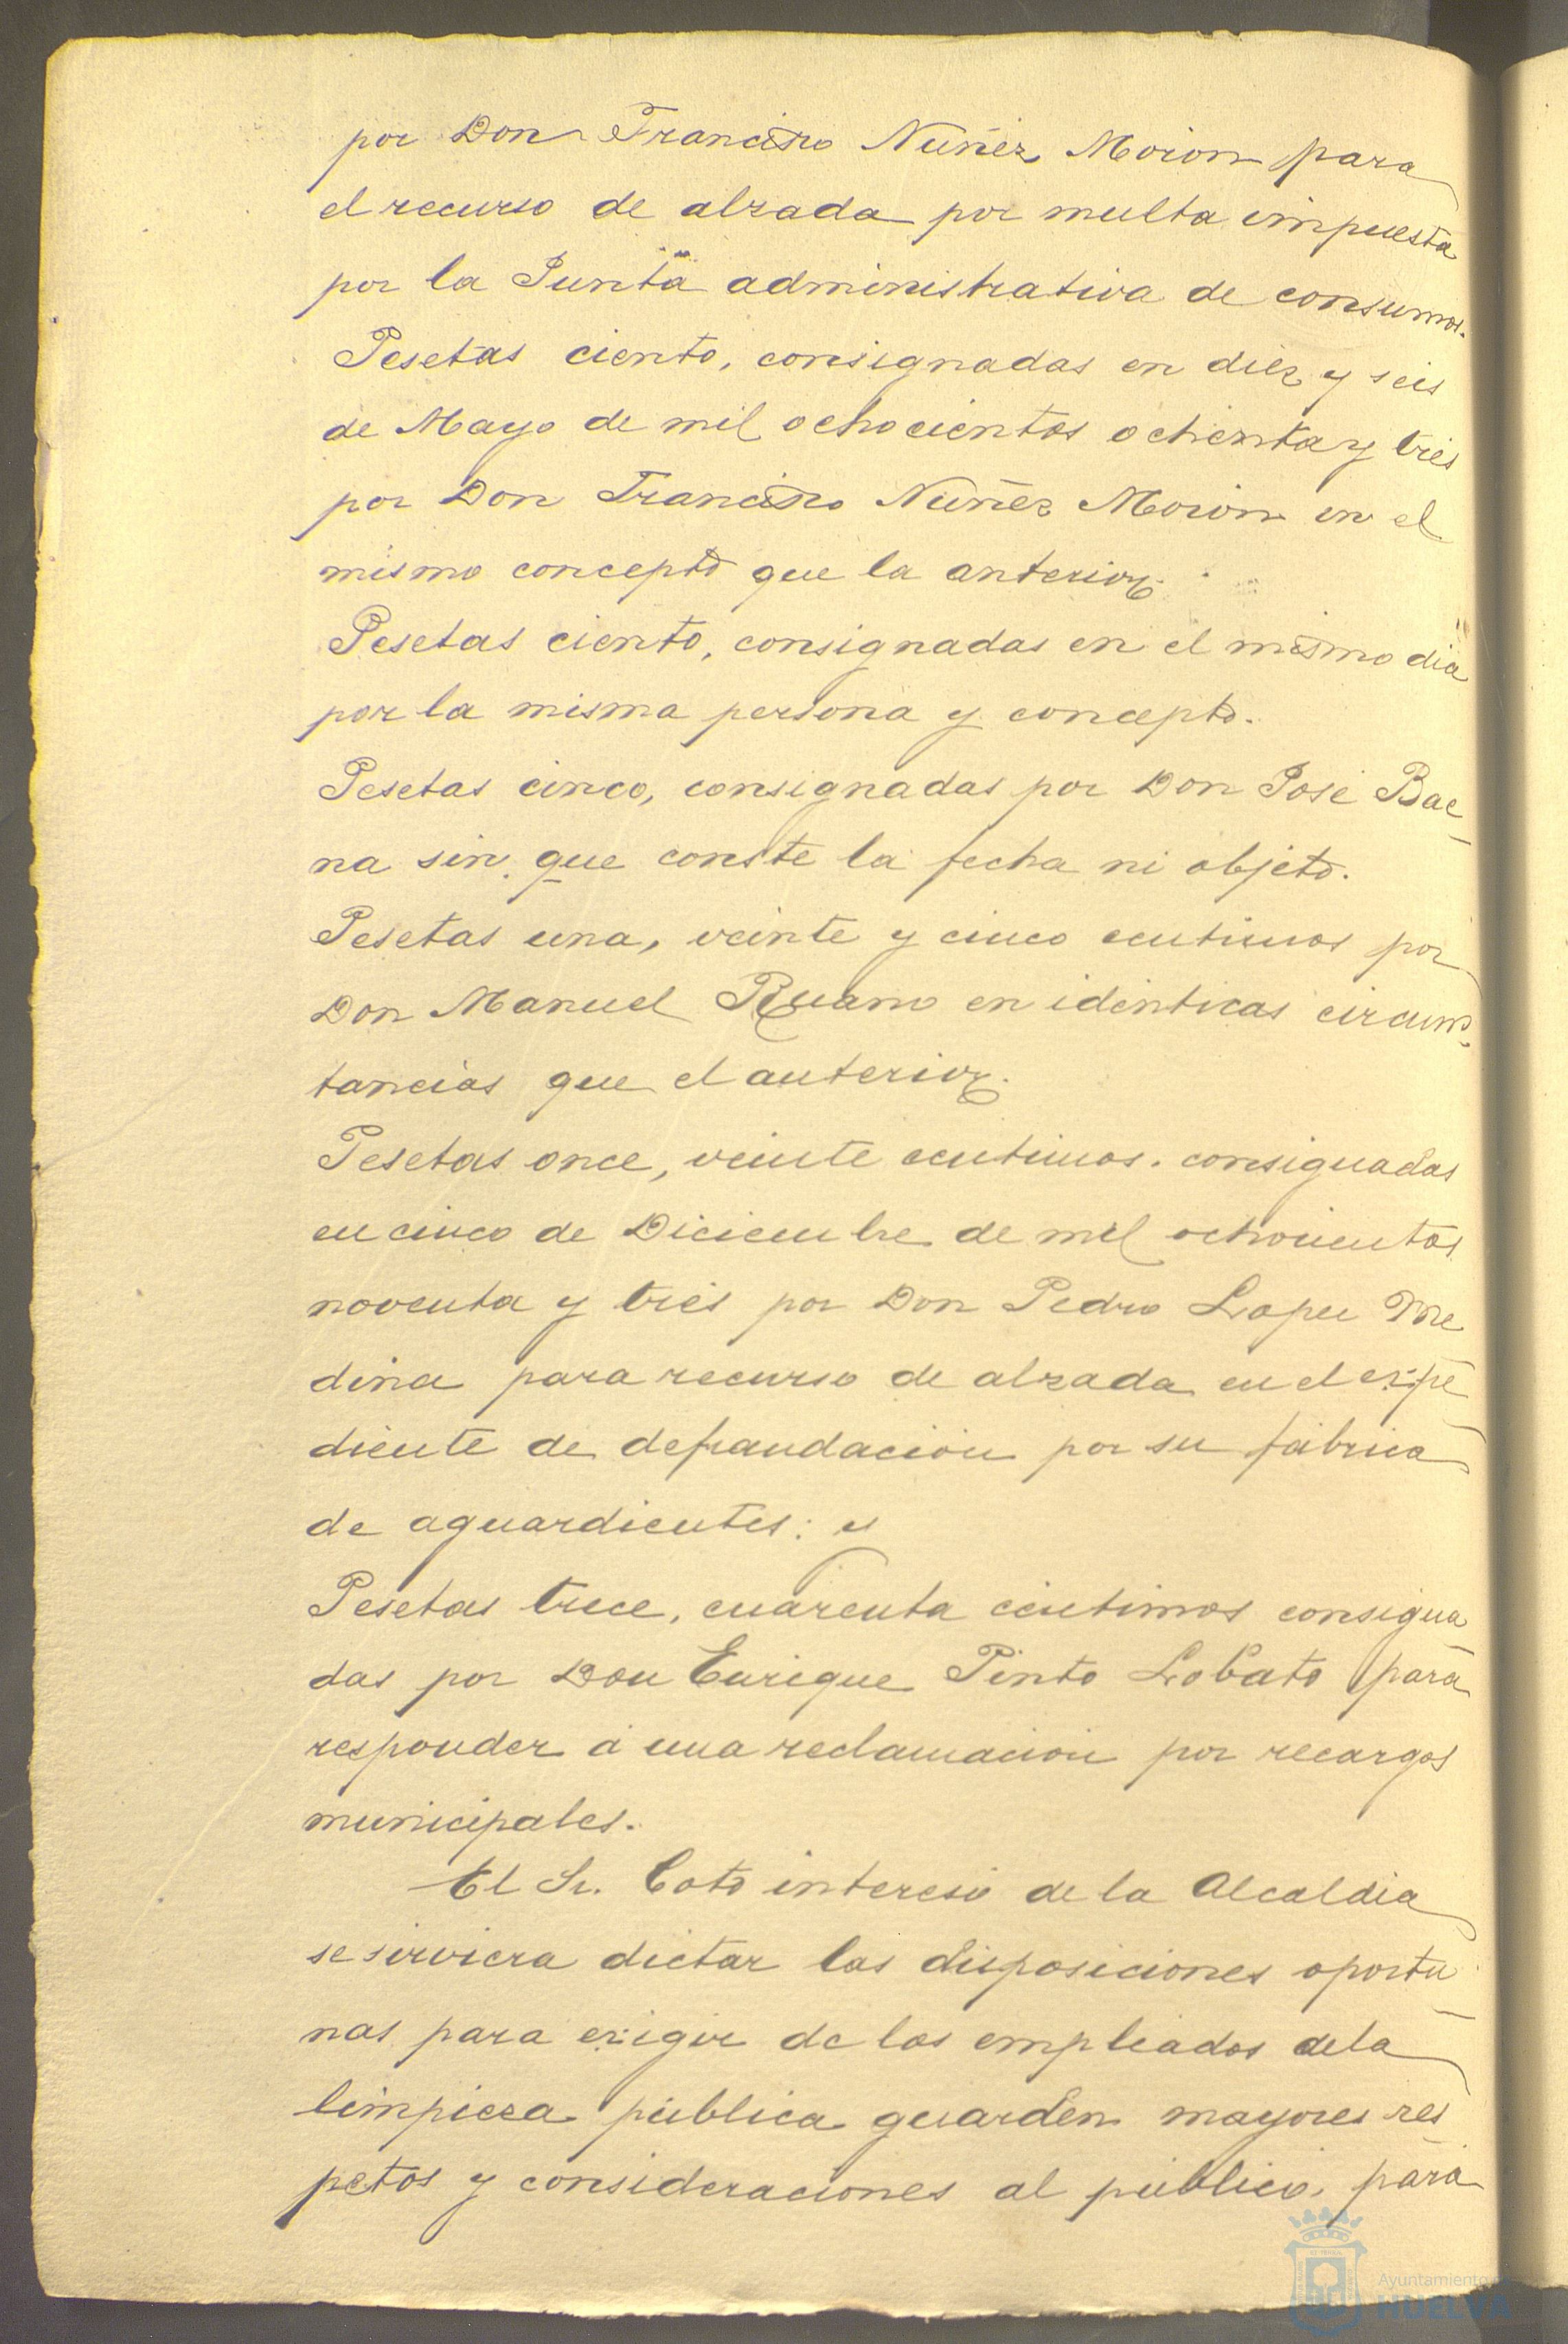 por Don Francisco Nuñez Moron para
el recurso de alzada por multa impuesta
por la Junta administrativa de consumos.
Pesetas ciento, consignadas en diez y seis
de Mayo de mil ochocientos ochenta y tres
por Don Francisco Nuñez Moron en el
mismo concepto que la anterior.
Pesetas ciento, consignadas en el mismo dia
por la misma persona y concepto.
Pesetas cinco, consignadas por Don José Bae-
na sin que conste la fecha ni objeto.
Pesetas una, veinte y cinco centimos por
Don Manuel Ruano en idénticas circuns-
tancias que el anterior.
Pesetas once, veinte centimos. consignadas
en cinco de Diciembre de mil ochocientos
noventa y tres por Don Pedro Lopez Me
dina para recurso de alzada en el expe-
diente de defraudación por su fábrica
de aguardientes: y
Pesetas trece, cuarenta céntimos consigna-
das por Don Enrique Pinto Lobato para
responder á una reclamación por recargos
municipales.
El Sr. Coto interesó de la Alcaldia
se sirviera dictar las disposiciones oportu-
nas para exigir de los empleados de la
limpieza pública guarden mayores res-
petos y consideraciones al público, para
Ayuntamiento
HUELVA